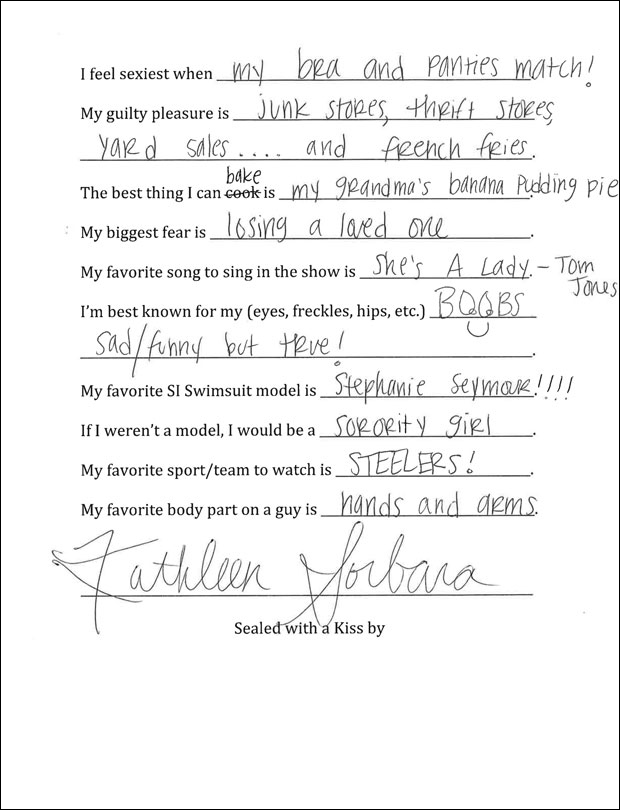 I feel sexiest when my bra and panties match!
My guilty pleasure is junk stores, thrift stores,
yard sales.... and french fries.
bake
The best thing I can cook is my grandma's banana pudding pie.
My biggest fear is losing a loved one.
My favorite song to sing in the show is She's A Lady. - Tom
Jones
I'm best known for my (eyes, freckles, hips, etc.) BOOBS
sad/funny but true!.
My favorite SI Swimsuit model is Stephanie Seymour!!!!
If I weren't a model, I would be a sorority girl.
My favorite sport/team to watch is STEELERS!.
My favorite body part on a guy is hands and arms.
Kathleen Sorbara
Sealed with a Kiss by